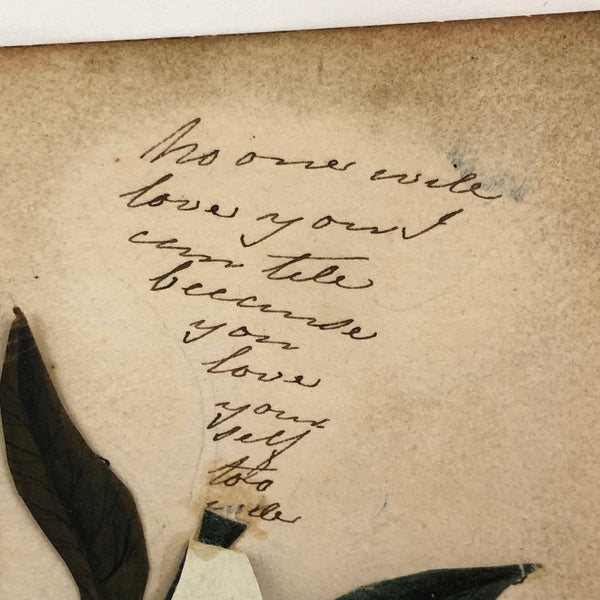 No one will
love you I
can tell
because
you
love
your
self
too
well